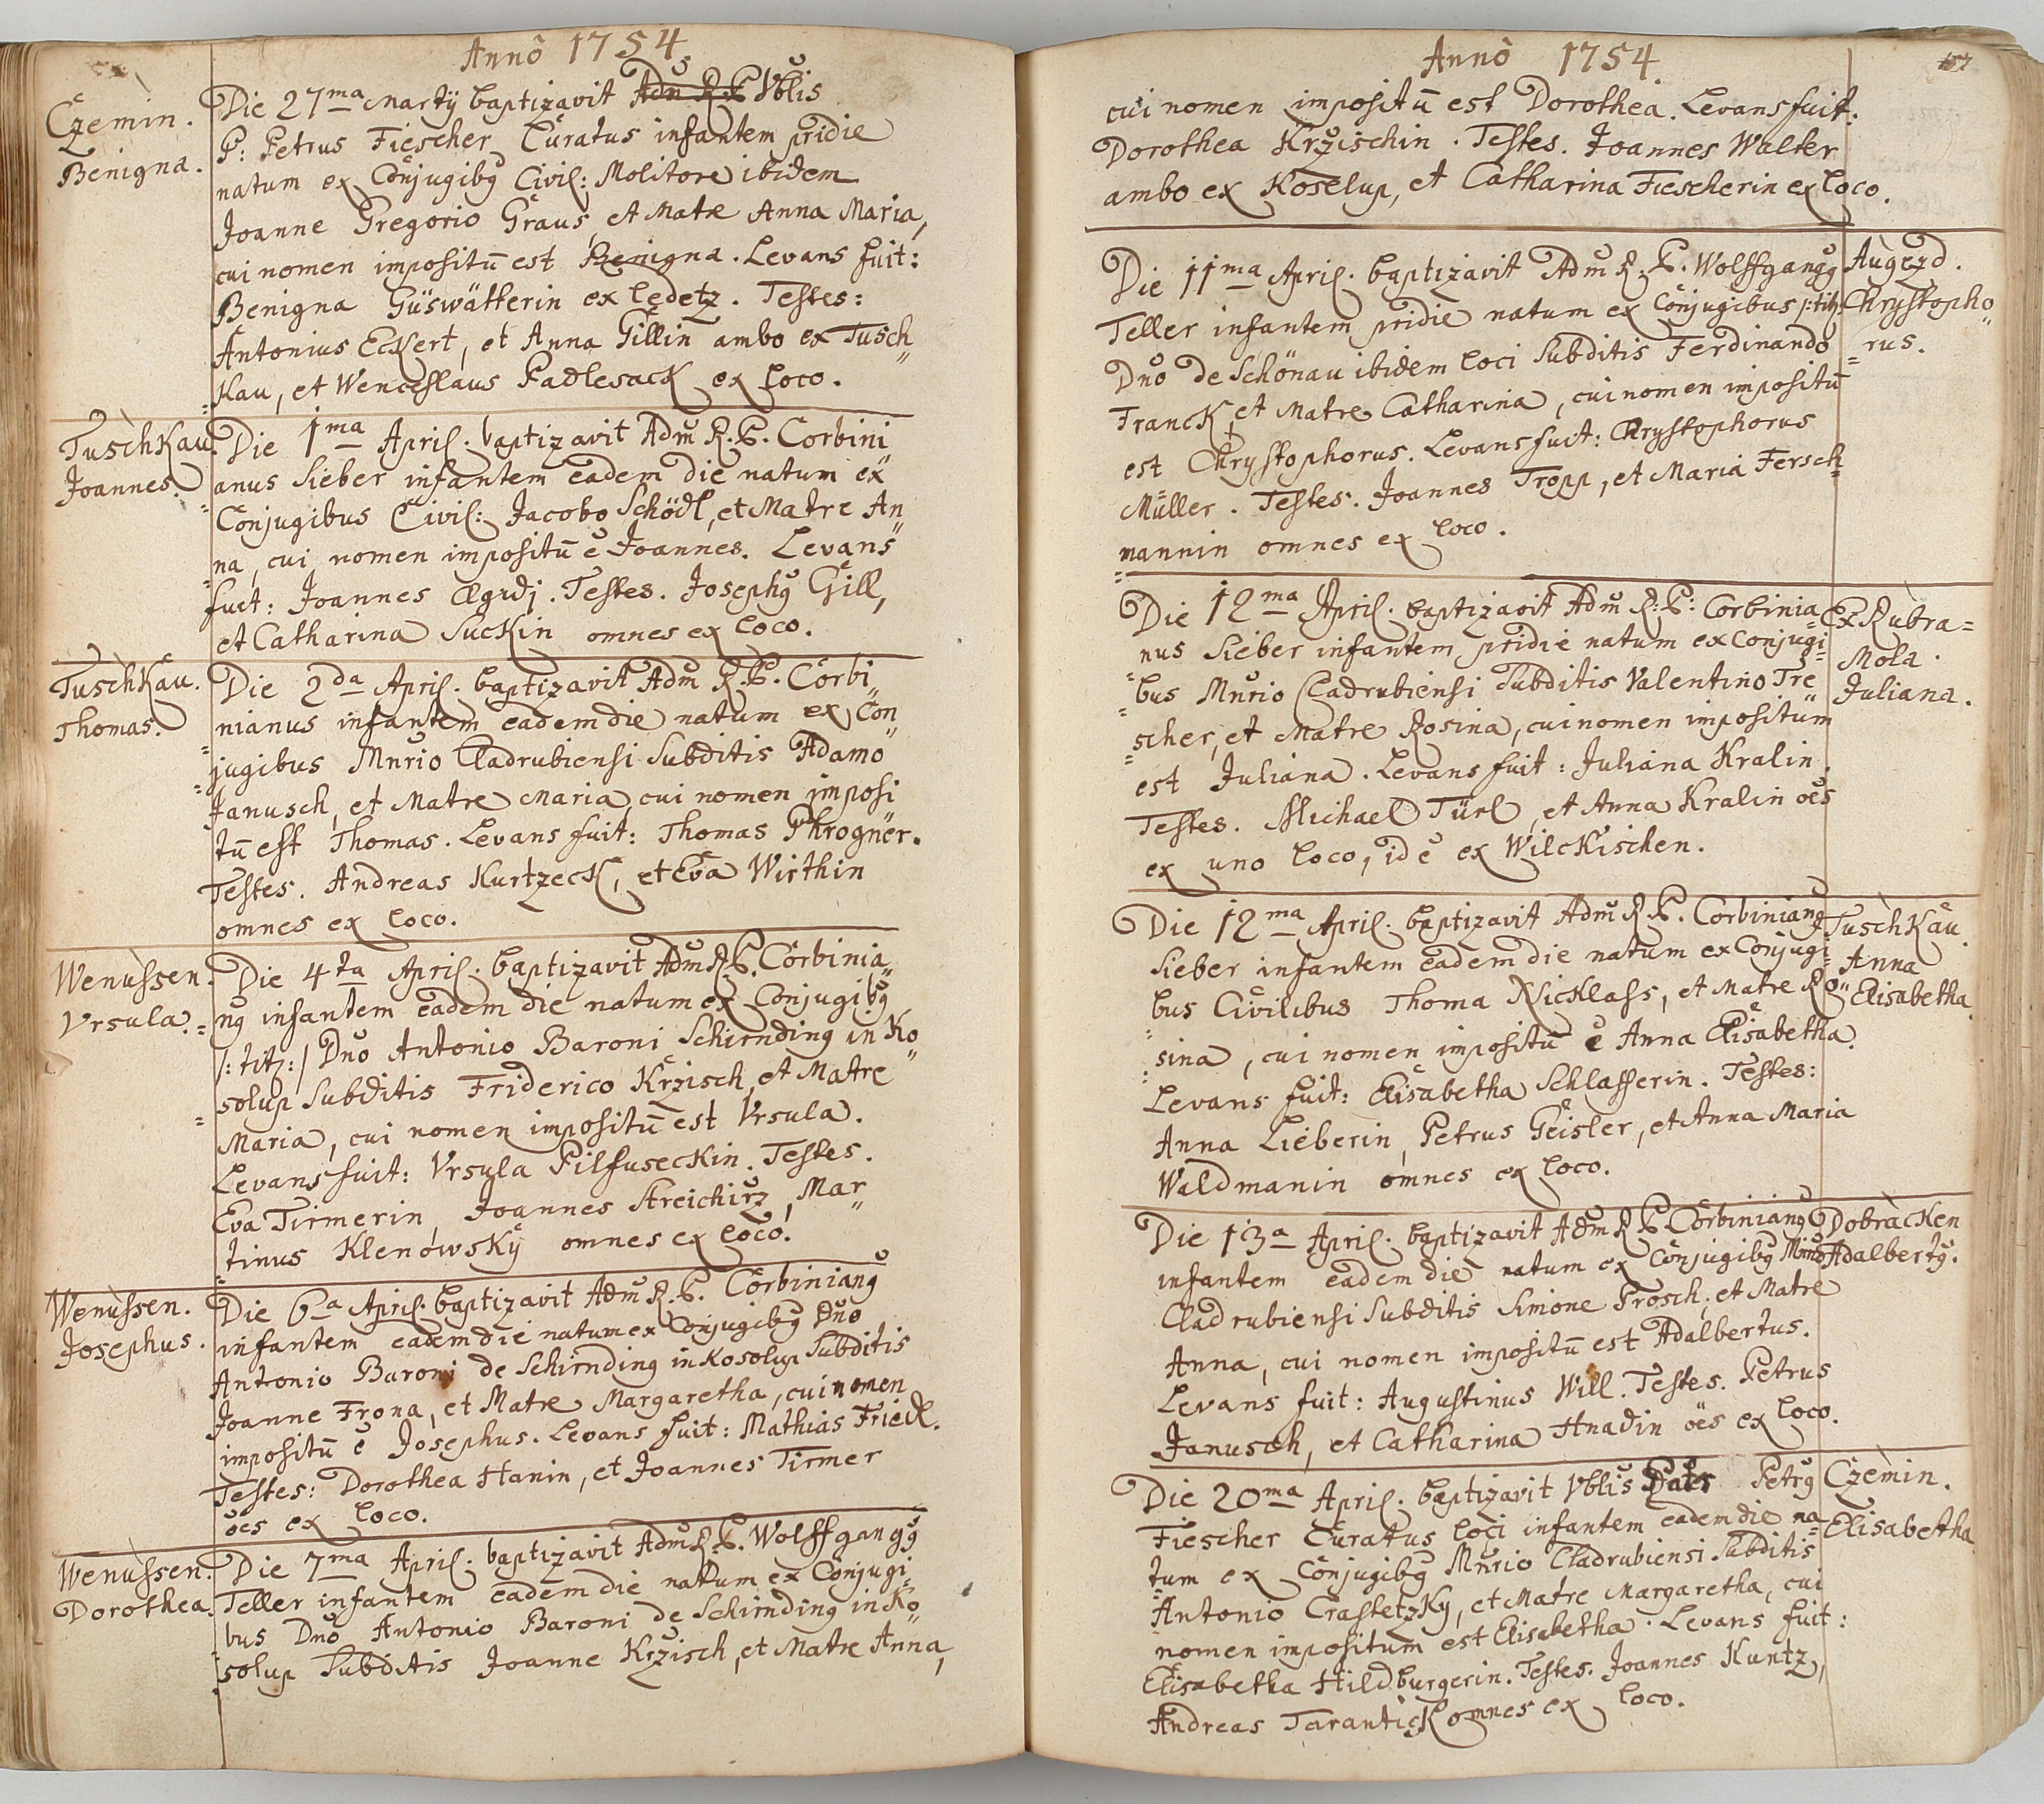 Anno 1754
Czemin.
Benigna.
Die 27ma Martij baptizavit Adm R. P. Vblis
P: Petrus Fiescher Curatus infantem pridie
natum ex Conjugibg Civil: Molitore ibidem
Joanne Gregorio Graus, et Matre Anna Maria,
cui nomen impositū est Benigna. Levans fuit:
Benigna Güswätterin ex Ledetz. Testes:
Antonius Eckert, et Anna Gillin ambo ex Tusch
kau, et Wenceslaus Padlesack ex loco.
Tuschkau.
Joannes.
Die 1ma April. baptizavit Adm R. P. Corbini
anus Sieber infantem eadem die natum ex
Conjugibus Civil: Jacobo Schödl, et Matre An
na, cui nomen impositū ē Joannes. Levans
fuit: Joannes Ægidj. Testes. Josephg Gill,
et Catharina Suckin omnes ex loco.
Tuschkau.
Thomas.
Die 2da April. baptizavit Adm R. P. Corbi
nianus infantem eadem die natum ex Con
jugibus Mnrio Cladrubiensi Subditis Adamo
Janusch, et Matre Maria, cui nomen imposi
tū est Thomas. Levans fuit: Thomas Phrogner.
Testes. Andreas Kurtzeck, et Eva Wirthin
omnes ex loco.
Wenussen.
Vrsula.
Die 4ta April. baptizavit Adm R. P. Corbinia
ng infantem eadem die natum ex Conjugibg
/: titl: / Dno Antonio Baroni Schirnding in Ko
solup Subditis Friderico Krzisch, et Matre
Maria, cui nomen impositū est Vrsula.
Levans fuit: Vrsula Pilfuseckin. Testes.
Eva Tirmerin, Joannes Streichirz, Mar
tinus Klenowskÿ omnes ex loco.
Wenussen.
Josephus.
Die 6a April. baptizavit Adm R. P. Corbiniang
infantem eadem die natum ex Conjugibg Dno
Antonio Baroni de Schirnding in Kosolup Subditis
Joanne Frona, et Matre Margaretha, cui nomen
impositū ē Josephus. Levans fuit: Mathias Friedl.
Testes: Dorothea Hanin, et Joannes Tirmer
oēs ex loco.
Wenussen.
Dorothea.
Die 7ma April. baptizavit Adm R. P. Wolffgangg
Teller infantem eadem die natum ex Conjugi
bus Dno Antonio Baroni de Schirnding in Ko
solup Subditis Joanne Krzisch, et Matre Anna,
Anno 1754.
157
cui nomen impositū est Dorothea. Levans fuit:
Dorothea Krzischin. Testes. Joannes Walter
ambo ex Koselup, et Catharina Fiescherin ex loco.
Die 11ma April. baptizavit Adm R. P. Wolffgangg
Teller infantem pridie natum ex Conjugibus /: titl:
Dno de Schönau ibidem loci Subditis Ferdinando
Franck, et Matre Catharina, cui nomen impositū
est Chrystophorus. Levans fuit: Chrystophorus
Müller. Testes. Joannes Tropp, et Maria Fersch
mannin omnes ex loco.
Augezd.
Chrystopho
rus.
Die 12ma April. baptizavit Adm R: P: Corbinia
nus Sieber infantem pridie natum ex Conjugi
bus Mnrio Cladrubiensi Subditis Valentino Tre
scher, et Matre Rosina, cui nomen impositum
est Juliana. Levans fuit: Juliana Kralin.
Testes. Michael Türl, et Anna Kralin oēs
ex uno loco, id ē ex Wilckischen.
Ex Rubra=
Mola.
Juliana.
Die 12ma April. baptizavit Adm R P. Corbiniang
Sieber infantem eadem die natum ex Conjugi
bus Civilibus Thoma Nicklass, et Matre Ro
sina, cui nomen impositū ē Anna Elisabetha.
Levans fuit: Elisabetha Schlafferin. Testes:
Anna Lieberin, Petrus Geisler, et Anna Maria
Waldmanin omnes ex loco.
Tuschkau.
Anna
Elisabetha.
Die 13a April. baptizavit Adm R P. Corbiniang
infantem eadem die natum ex Conjugibg Mnrio
Cladrubiensi Subditis Simone Prosch, et Matre
Anna, cui nomen impositū est Adalbertus.
Levans fuit: Augustinus Will. Testes. Petrus
Janusch, et Catharina Hnadin oēs ex loco.
Dobracken
Adalbertg.
Die 20ma April. baptizavit Vblis Pater Petrg
Fiescher Curatus loci infantem eadem die na
tum ex Conjugibg Mnrio Cladrubiensi Subditis
Antonio Crastetzky, et Matre Margaretha, cui
nomen impositum est Elisabetha. Levans fuit:
Elisabetha Hildburgerin. Testes. Joannes Kuntz,
Andreas Tarantick omnes ex loco.
Czemin.
Elisabetha.